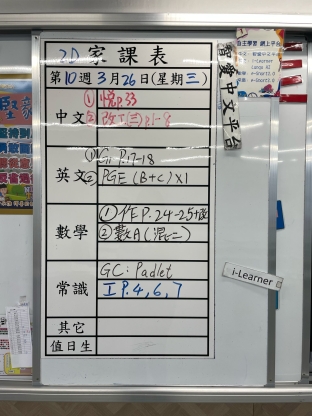 2D 家課表
第10週3月26日(星期三)
中文
① 悅P.33
② 改工(三)P.1-8
英文
① G1 P.17-18
② PGE (B+C)X1
數學
① 作E P.24-25+改
② 數A(混二)
常識
GC: Padlet
工P.4,6,7
其它
值日生
智愛中文平台
i-Learner
自主學習 網上平台